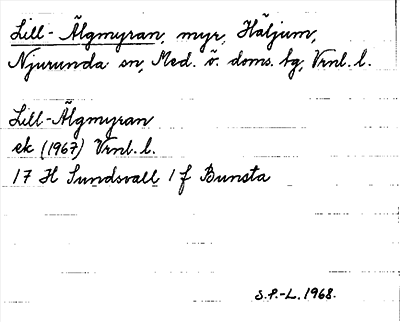 Lill-Älgmyran, myr, Häljum,
Njurunda sn, Med. ö. doms. tg, Vrnl. l.
Lill-Älgmyran
ek (1967) Vrnl. l.
17 H Sundsvall 1 f Bunsta
S.P.-L. 1968.